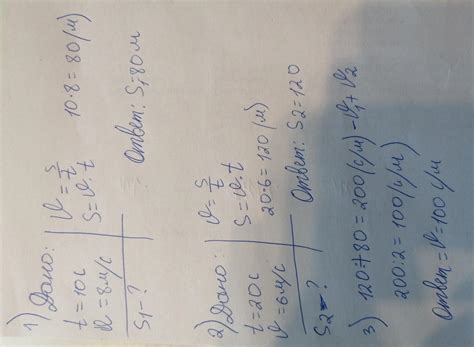 1) Дано:
t = 10 с
𝒱 = 8 м/с
S₁ - ?
𝒱 = S/t
S = 𝒱 · t
10 · 8 = 80 (м)
Ответ: S₁ = 80 м
2) Дано:
t = 20 с
𝒱 = 6 м/с
S₂ - ?
𝒱 = S/t
S = 𝒱 · t
20 · 6 = 120 (м)
Ответ: S₂ = 120
3) 120 + 80 = 200 (с/м) - 𝒱₁ + 𝒱₂
200 : 2 = 100 (с/м)
Ответ = 𝒱 = 100 с/м